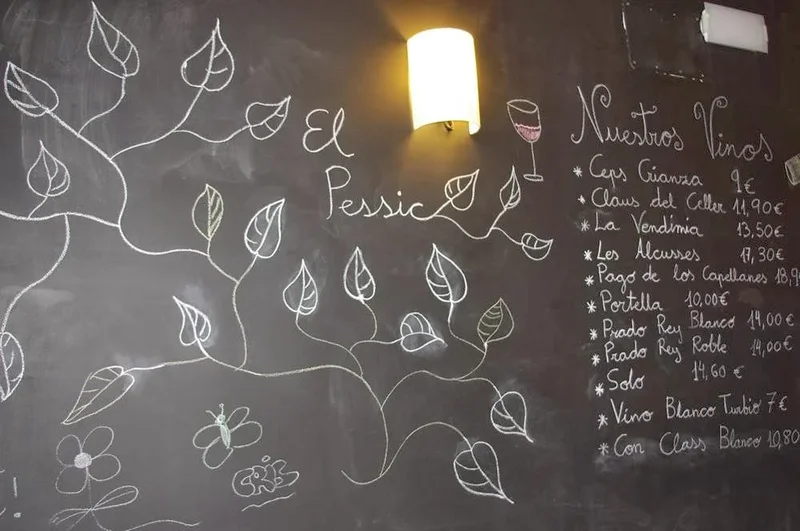 El
Pessic
Nuestros Vinos
* Ceps Crianza 9€
* Claus del Celler 11,90€
* La Vendimia 13,50€
* Les Alcusses 17,30€
* Pago de los Capellanes 18,9
* Portella 10,00€
* Prado Rey Blanco 14,00€
* Prado Rey Roble 14,00€
* Solo 14,60 €
* Vino Blanco Turbio 7€
* Con Class Blanco 10,80
!